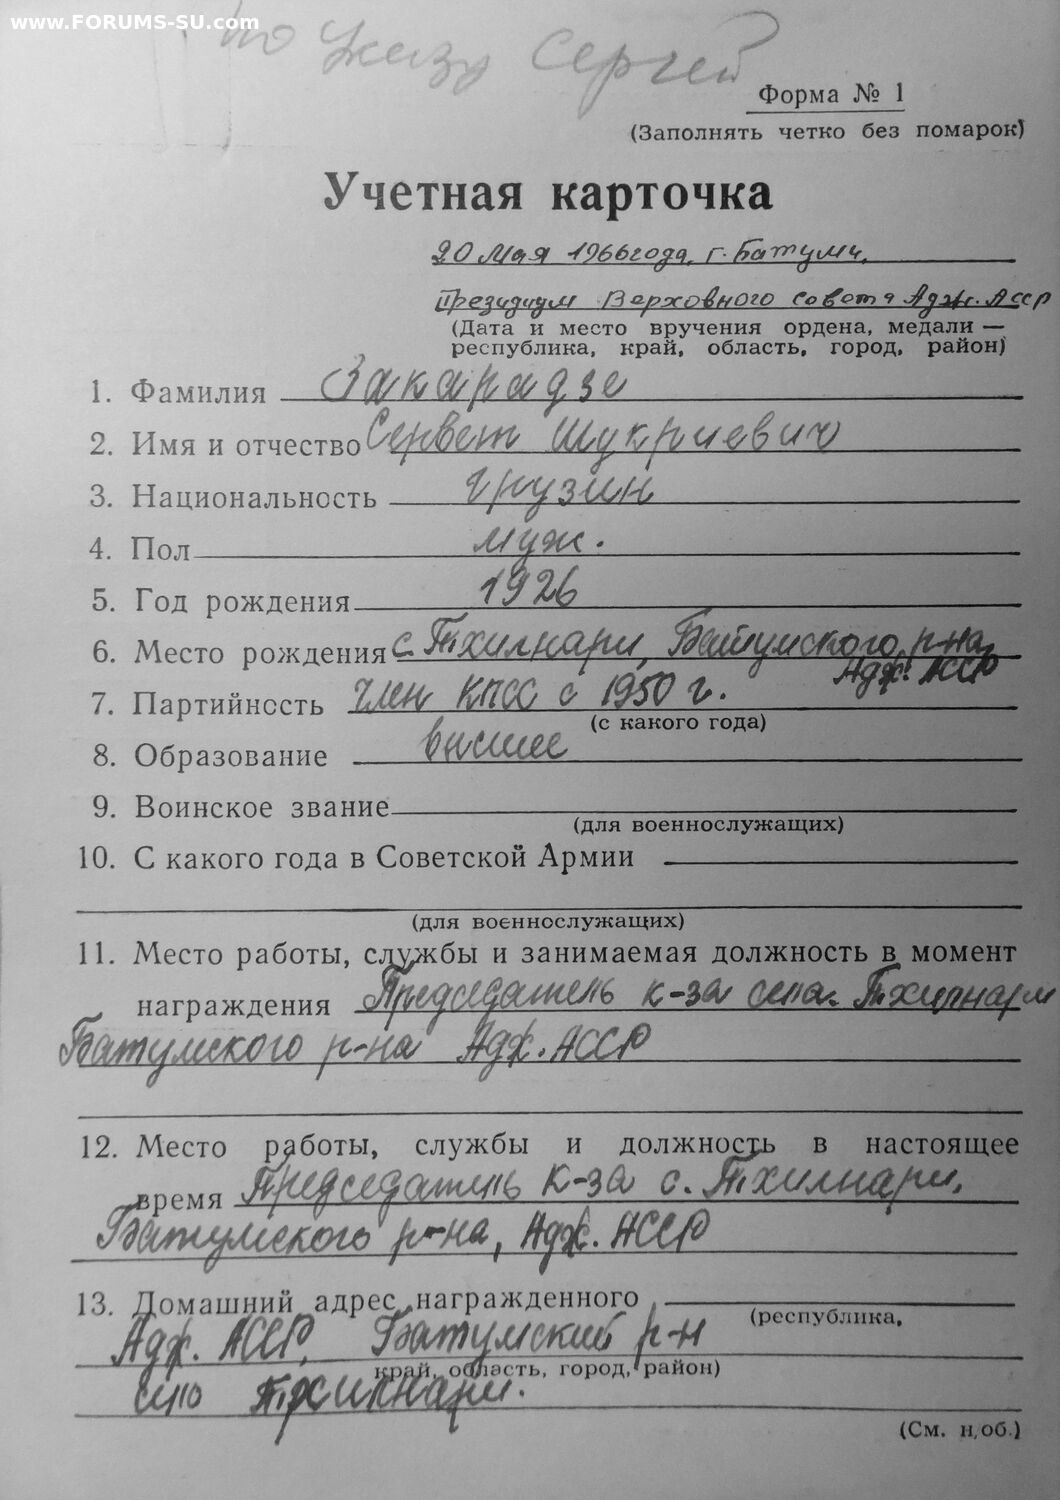 www.FORUMS-SU.com
по указу Сергей
Форма № 1
(Заполнять четко без помарок)
Учетная карточка
20 Мая 1966 года, г. Батуми,
Президиум Верховного совета Адж. АССР
(Дата и место вручения ордена, медали —
республика, край, область, город, район)
1. Фамилия Закарадзе
2. Имя и отчество Сервет Шукриевич
3. Национальность грузин
4. Пол муж.
5. Год рождения 1926
6. Место рождения с. Тхилнари, Батумского р-на,
Адж. АССР
7. Партийность член КПСС с 1950 г.
(с какого года)
8. Образование высшее
9. Воинское звание
(для военнослужащих)
10. С какого года в Советской Армии
(для военнослужащих)
11. Место работы, службы и занимаемая должность в момент
награждения Председатель к-за села. Тхилнари
Батумского р-на Адж. АССР
12. Место работы, службы и должность в настоящее
время Председатель к-за с. Тхилнари,
Батумского р-на, Адж. АССР
13. Домашний адрес награжденного
(республика,
Адж. АССР, Батумский р-н
край, область, город, район)
село Тхилнари.
(См. н/об.)